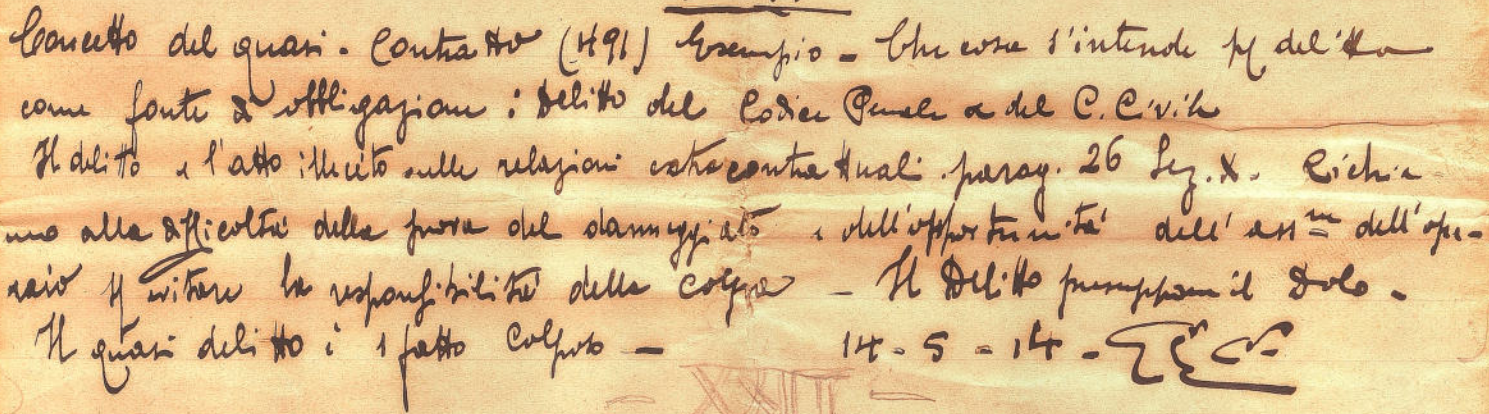 Concetto del quasi - Contratto (491) Esempio - Che cosa s'intende pel delitto
come fonte d'obbligazione: Delitto del Codice Penale e del C. Civile
Il delitto e l'atto illecito nelle relazioni extracontrattuali parag. 26 Lez. X. Richia
mo alla difficoltà della prova del danneggiato e dell'opportunità dell'assne dell'ope-
raio evitare la responsibilità della colpa - Il Delitto presuppone il Dolo -
Il quasi delitto è 1 fatto Colposo - 14 - 5 - 14 -
- XXII -